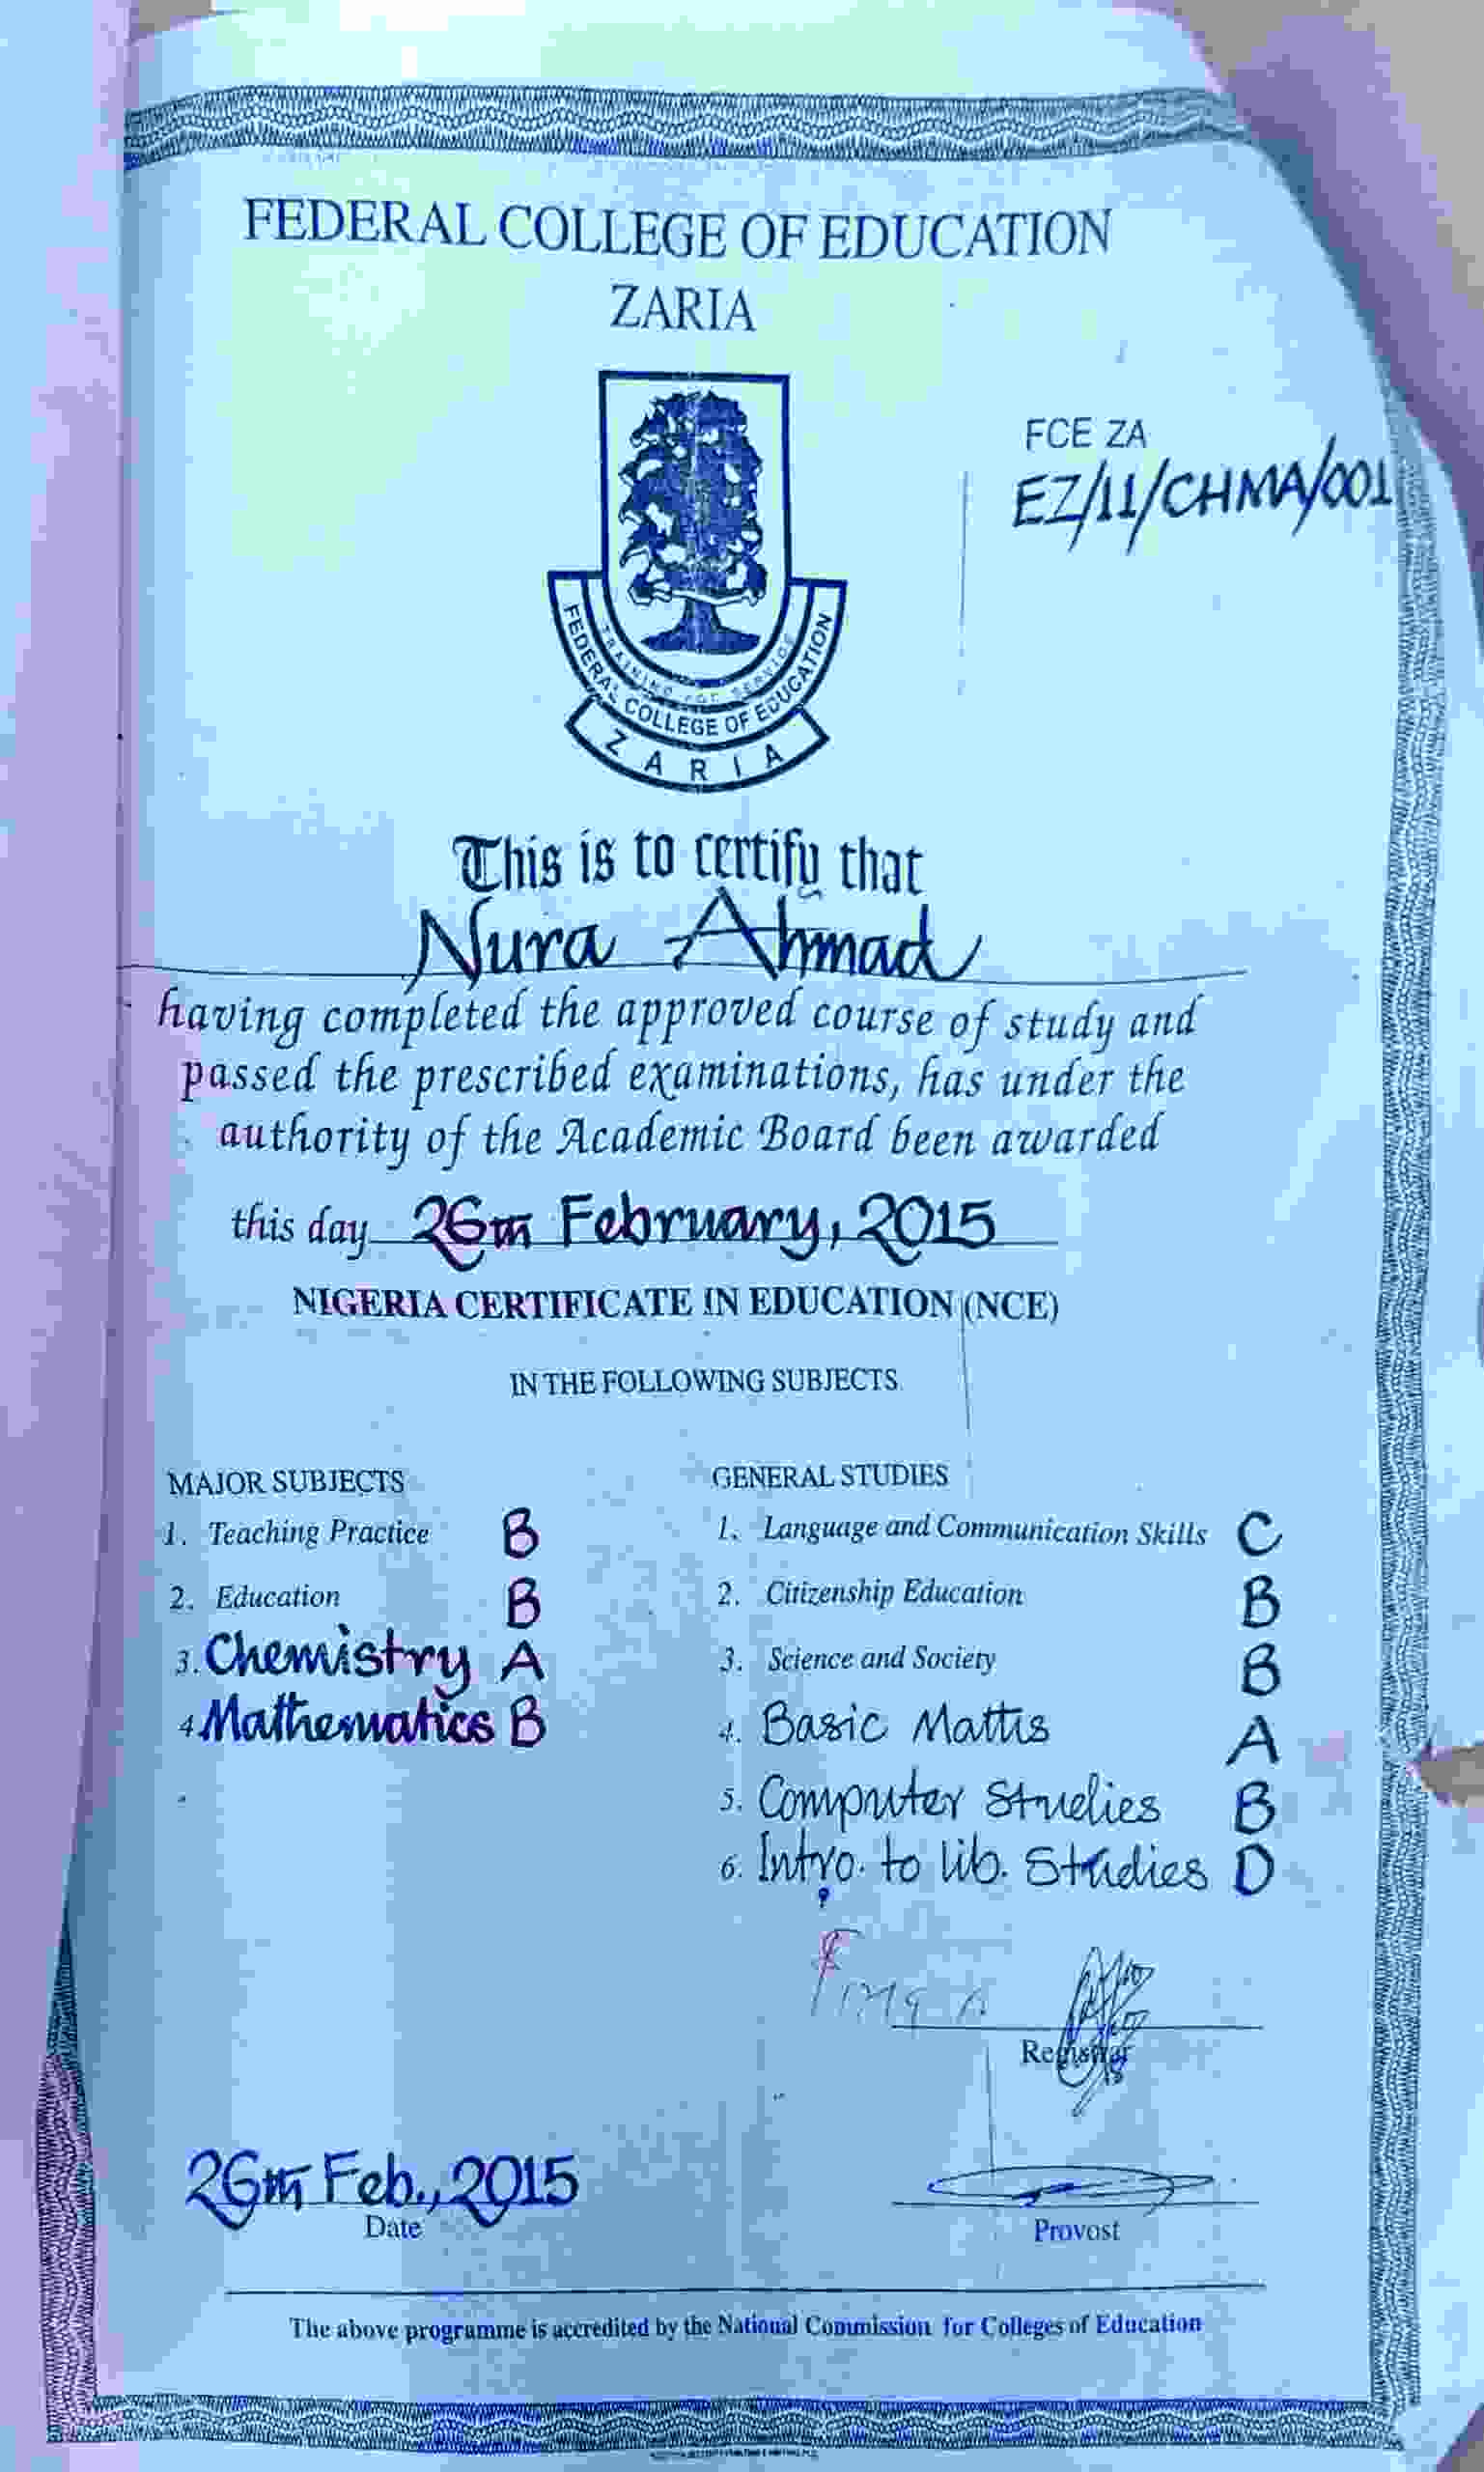 FEDERAL COLLEGE OF EDUCATION
ZARIA
FCE ZA
EZ/11/CHMA/001
TRAINING FOR SERVICE
FEDERAL COLLEGE OF EDUCATION
ZARIA
This is to certify that
Nura Ahmad
having completed the approved course of study and
passed the prescribed examinations, has under the
authority of the Academic Board been awarded
this day 26th February, 2015
NIGERIA CERTIFICATE IN EDUCATION (NCE)
IN THE FOLLOWING SUBJECTS
MAJOR SUBJECTS
1. Teaching Practice B
2. Education B
3. Chemistry A
4 Mathematics B
GENERAL STUDIES
1. Language and Communication Skills C
2. Citizenship Education B
3. Science and Society B
4. Basic Maths A
5. Computer Studies B
6. Intro. to Lib. Studies D
Registrar
26th Feb., 2015
Date
Provost
The above programme is accredited by the National Commission for Colleges of Education